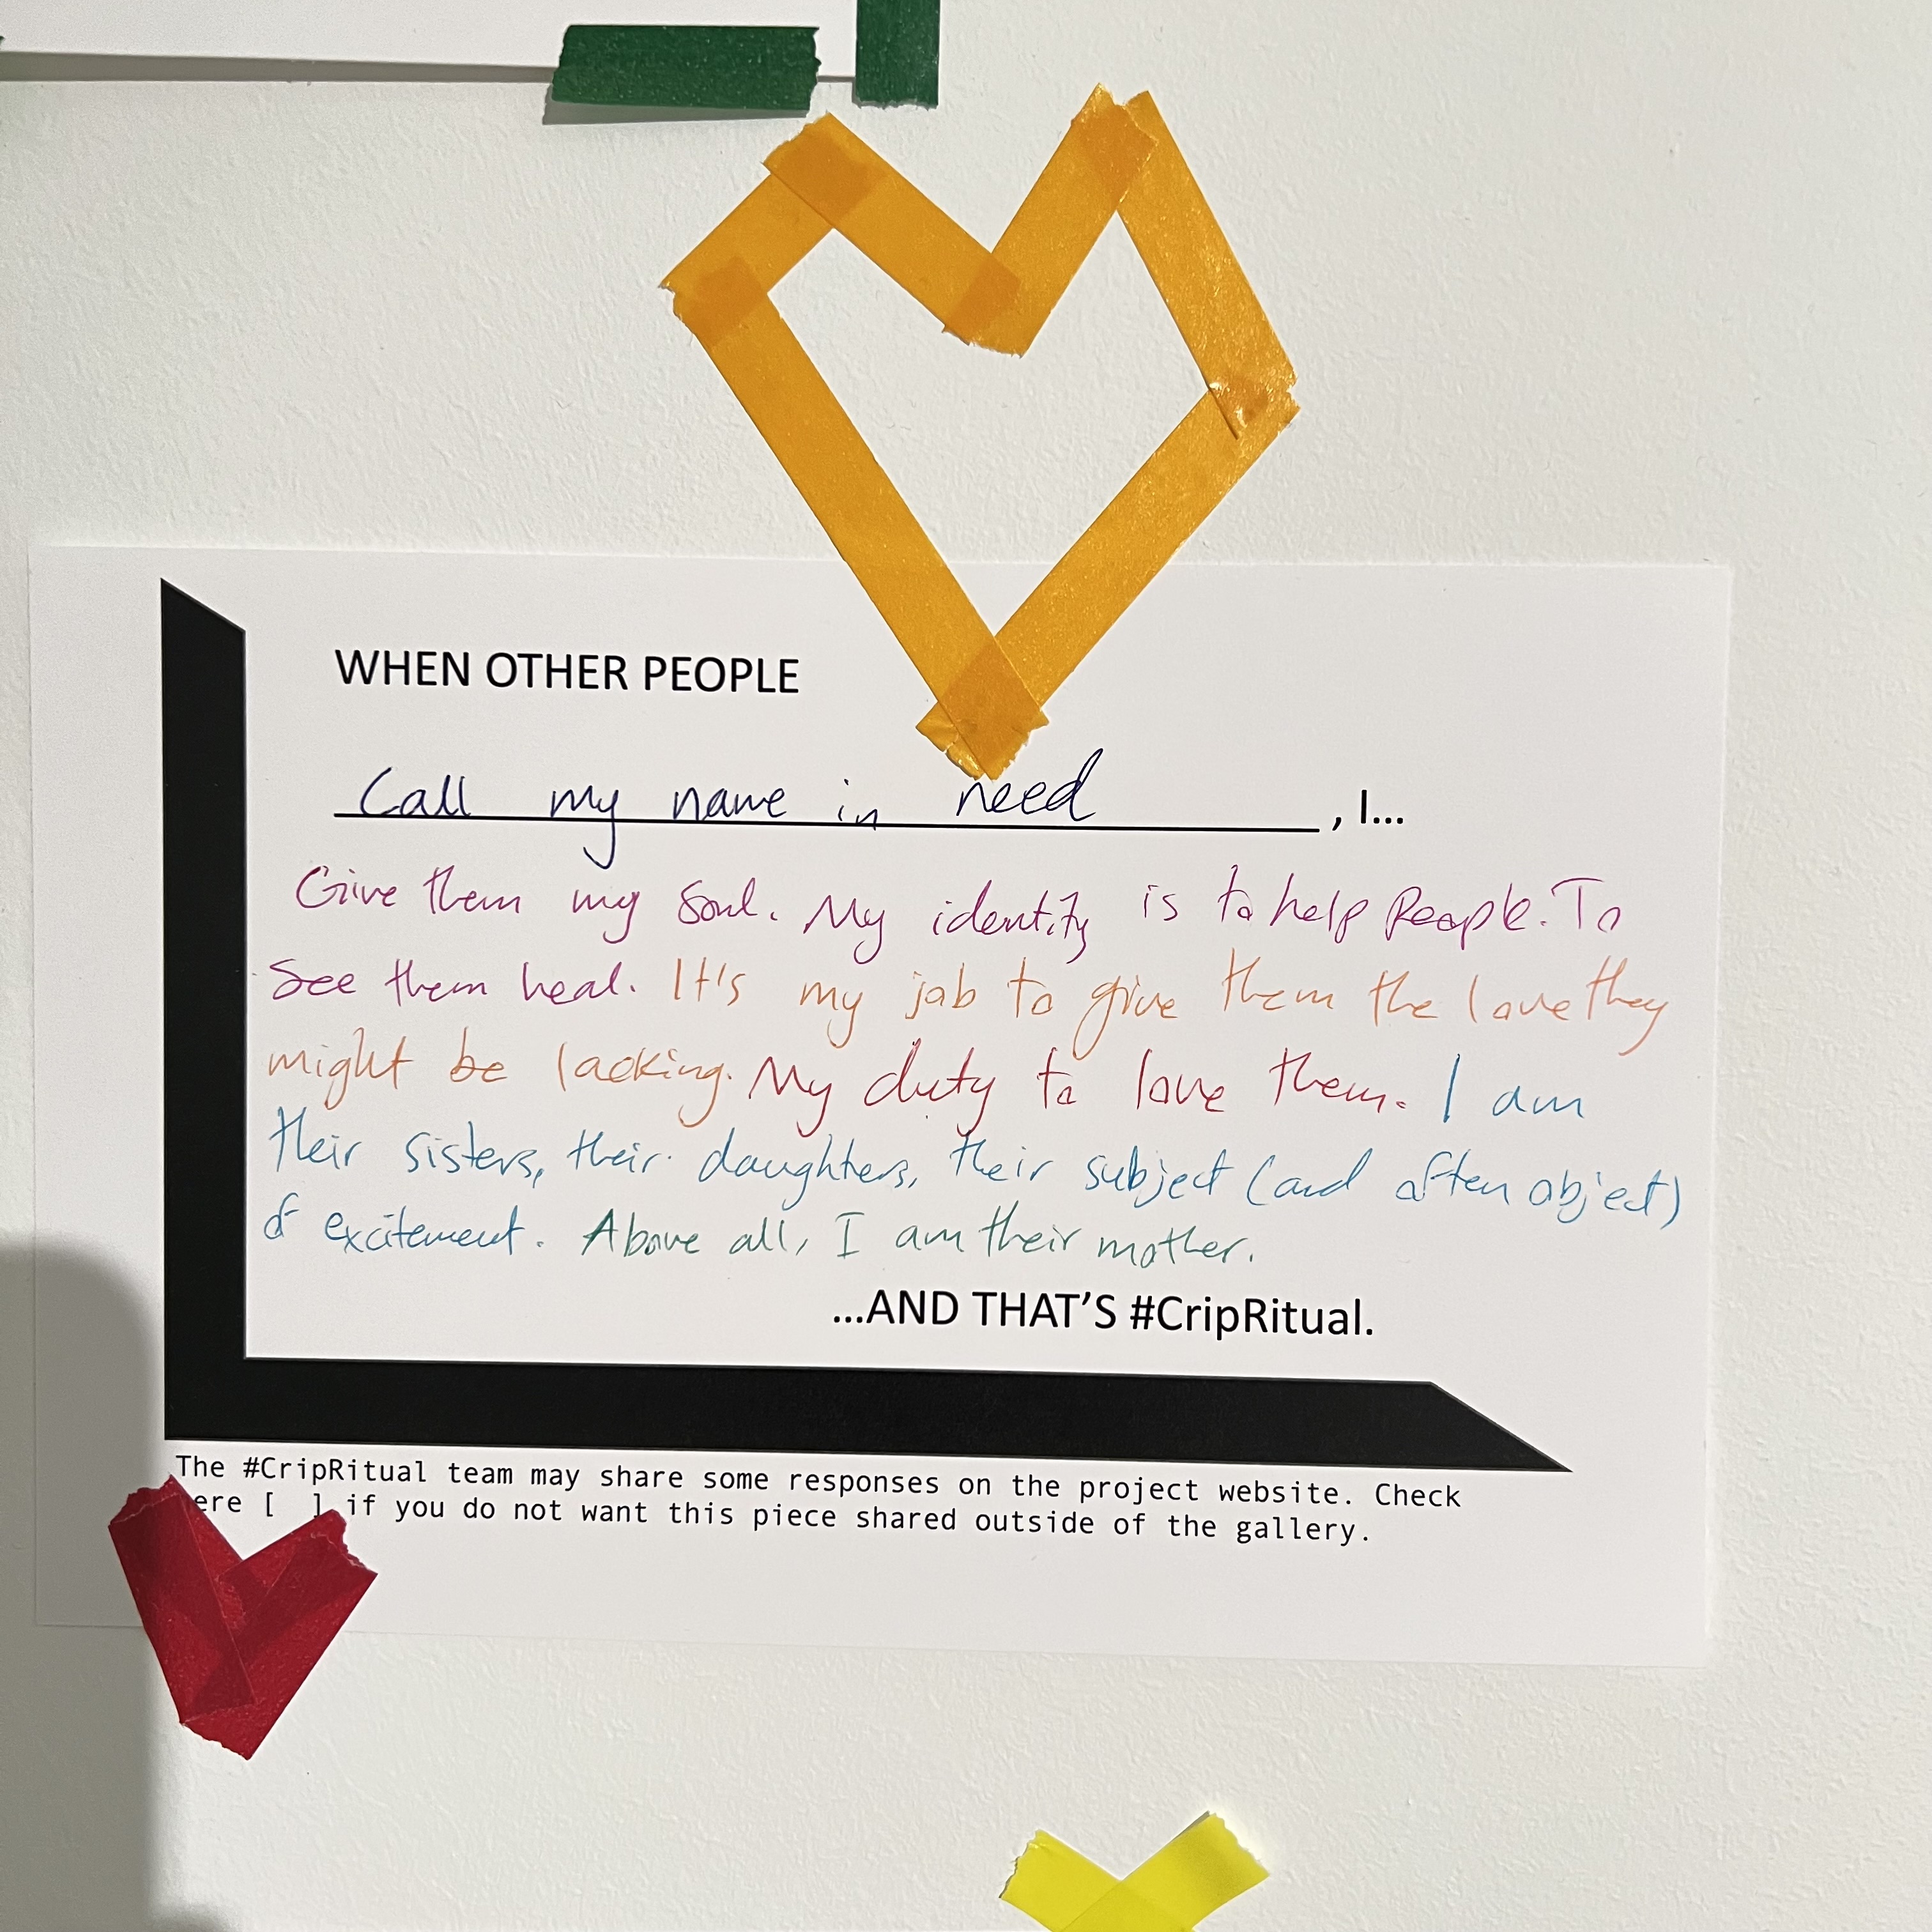 WHEN OTHER PEOPLE
Call my name in need , I...
Give them my soul. My identity is to help People. To
see them heal. It's my job to give them the love they
might be lacking. My duty to love them. I am
their sisters, their daughters, their subject (and often object)
of excitement. Above all, I am their mother.
...AND THAT'S #CripRitual.
The #CripRitual team may share some responses on the project website. Check
ere [ ] if you do not want this piece shared outside of the gallery.